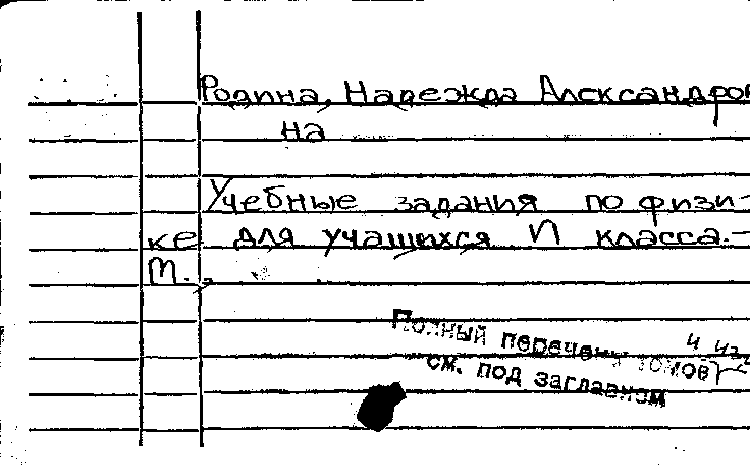 Родина, Надежда Александров
на
Учебные задания по физи-
ке для учащихся VI класса.-
М.,
Полный перечень томов
см. под заглавием